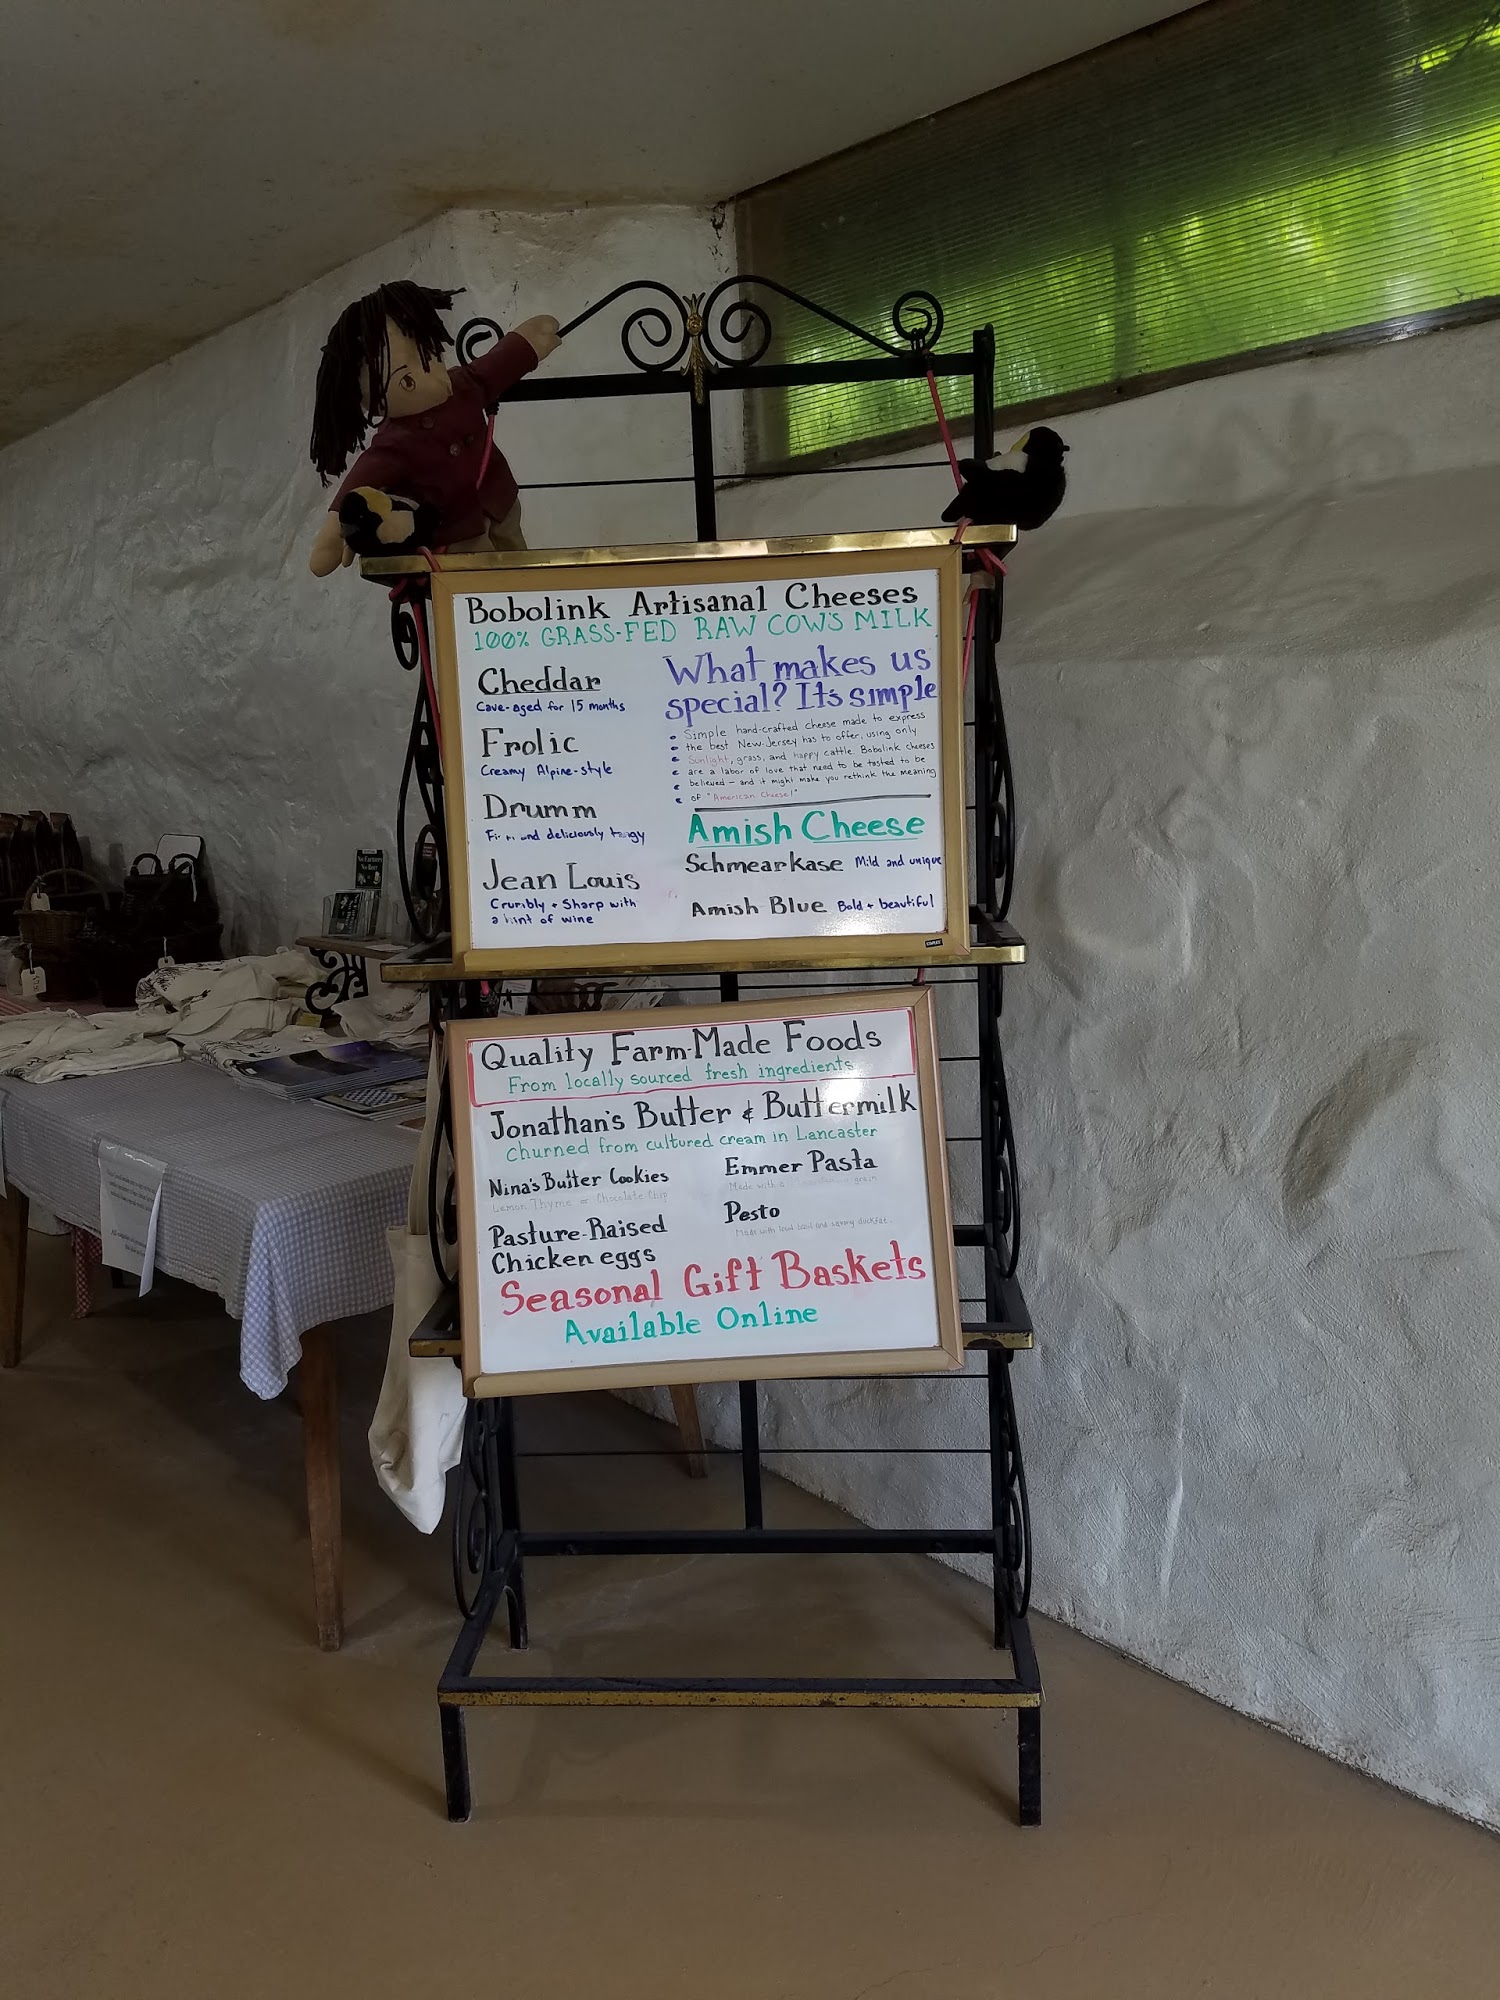 Bobolink Artisanal Cheeses
100% GRASS-FED RAW COW'S MILK
Cheddar
Cave-aged for 15 months
Frolic
Creamy Alpine-style
Drumm
and deliciously tangy
Jean Louis
Crumbly + Sharp with
a hint of wine
What makes us
special? It's simple
Simple hand-crafted cheese made to express
the best New Jersey has to offer, using only
Sunlight, grass, and happy cattle. Bobolink cheeses
are a labor of love that need to be tasted to be
believed - and it might make you rethink the meaning
of "American Cheese!"
Amish Cheese
Schmearkase Mild and unique
Amish Blue Bold + beautiful
STAPLES
Quality Farm-Made Foods
From locally sourced fresh ingredients
Jonathan's Butter & Buttermilk
Churned from cultured cream in Lancaster
Nina's Butter Cookies
Lemon Thyme or Chocolate Chip
Pasture-Raised
Chicken eggs
Emmer Pasta
Made with a grain
Pesto
Made with local basil and savory duckfat.
Seasonal Gift Baskets
Available Online
No Farmers
No Beer